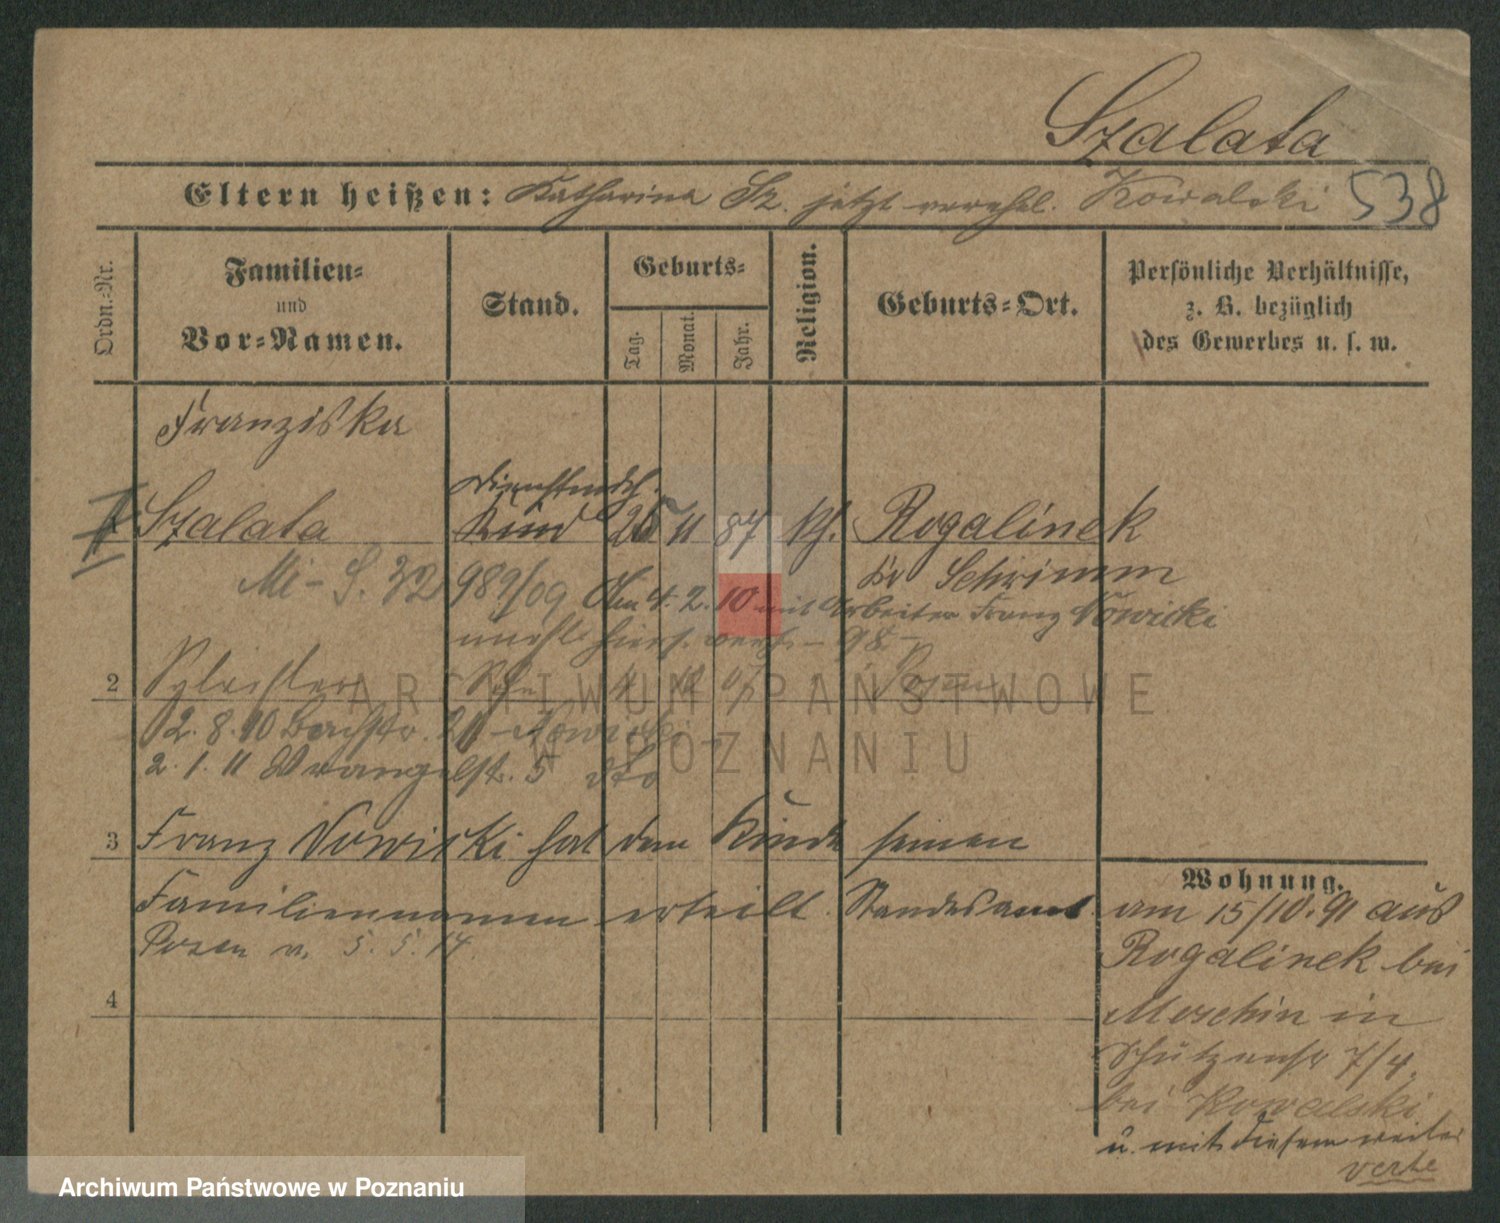 Szalata
Eltern heißen: Katharina Sz. jetzt verehel. Kowalski 538
Ordn.-Nr.
Familien-
und
Vor-Namen.
Stand.
Geburts-
Tag.
Monat.
Jahr.
Religion.
Geburts-Ort.
Persönliche Verhältnisse,
z. B. bezüglich
des Gewerbes u. s. w.
Franziska
Szalata Kind 25 11 87 kth. Rogalinek
Kr Schrimm
989/09 Am 4. 2. 10 mit Arbeiter Franz Nowicki
98
2 Posen
2. 8. 10 Bachstr. 20 Nowicki
2. 1. 11 Wrangelstr. 5 dto
3 Franz Nowicki hat dem Kinde seinen
Familiennamen erteilt. Standesamt
Posen v. 5. 5. 14.
4
Wohnung.
am 15/10. 91 aus
Rogalinek bei
Moschin in
Schützenstr 7/4.
bei Kowalski
u. mit diesem weiter
verte
ARCHIWUM PAŃSTWOWE
W POZNANIU
Archiwum Państwowe w Poznaniu